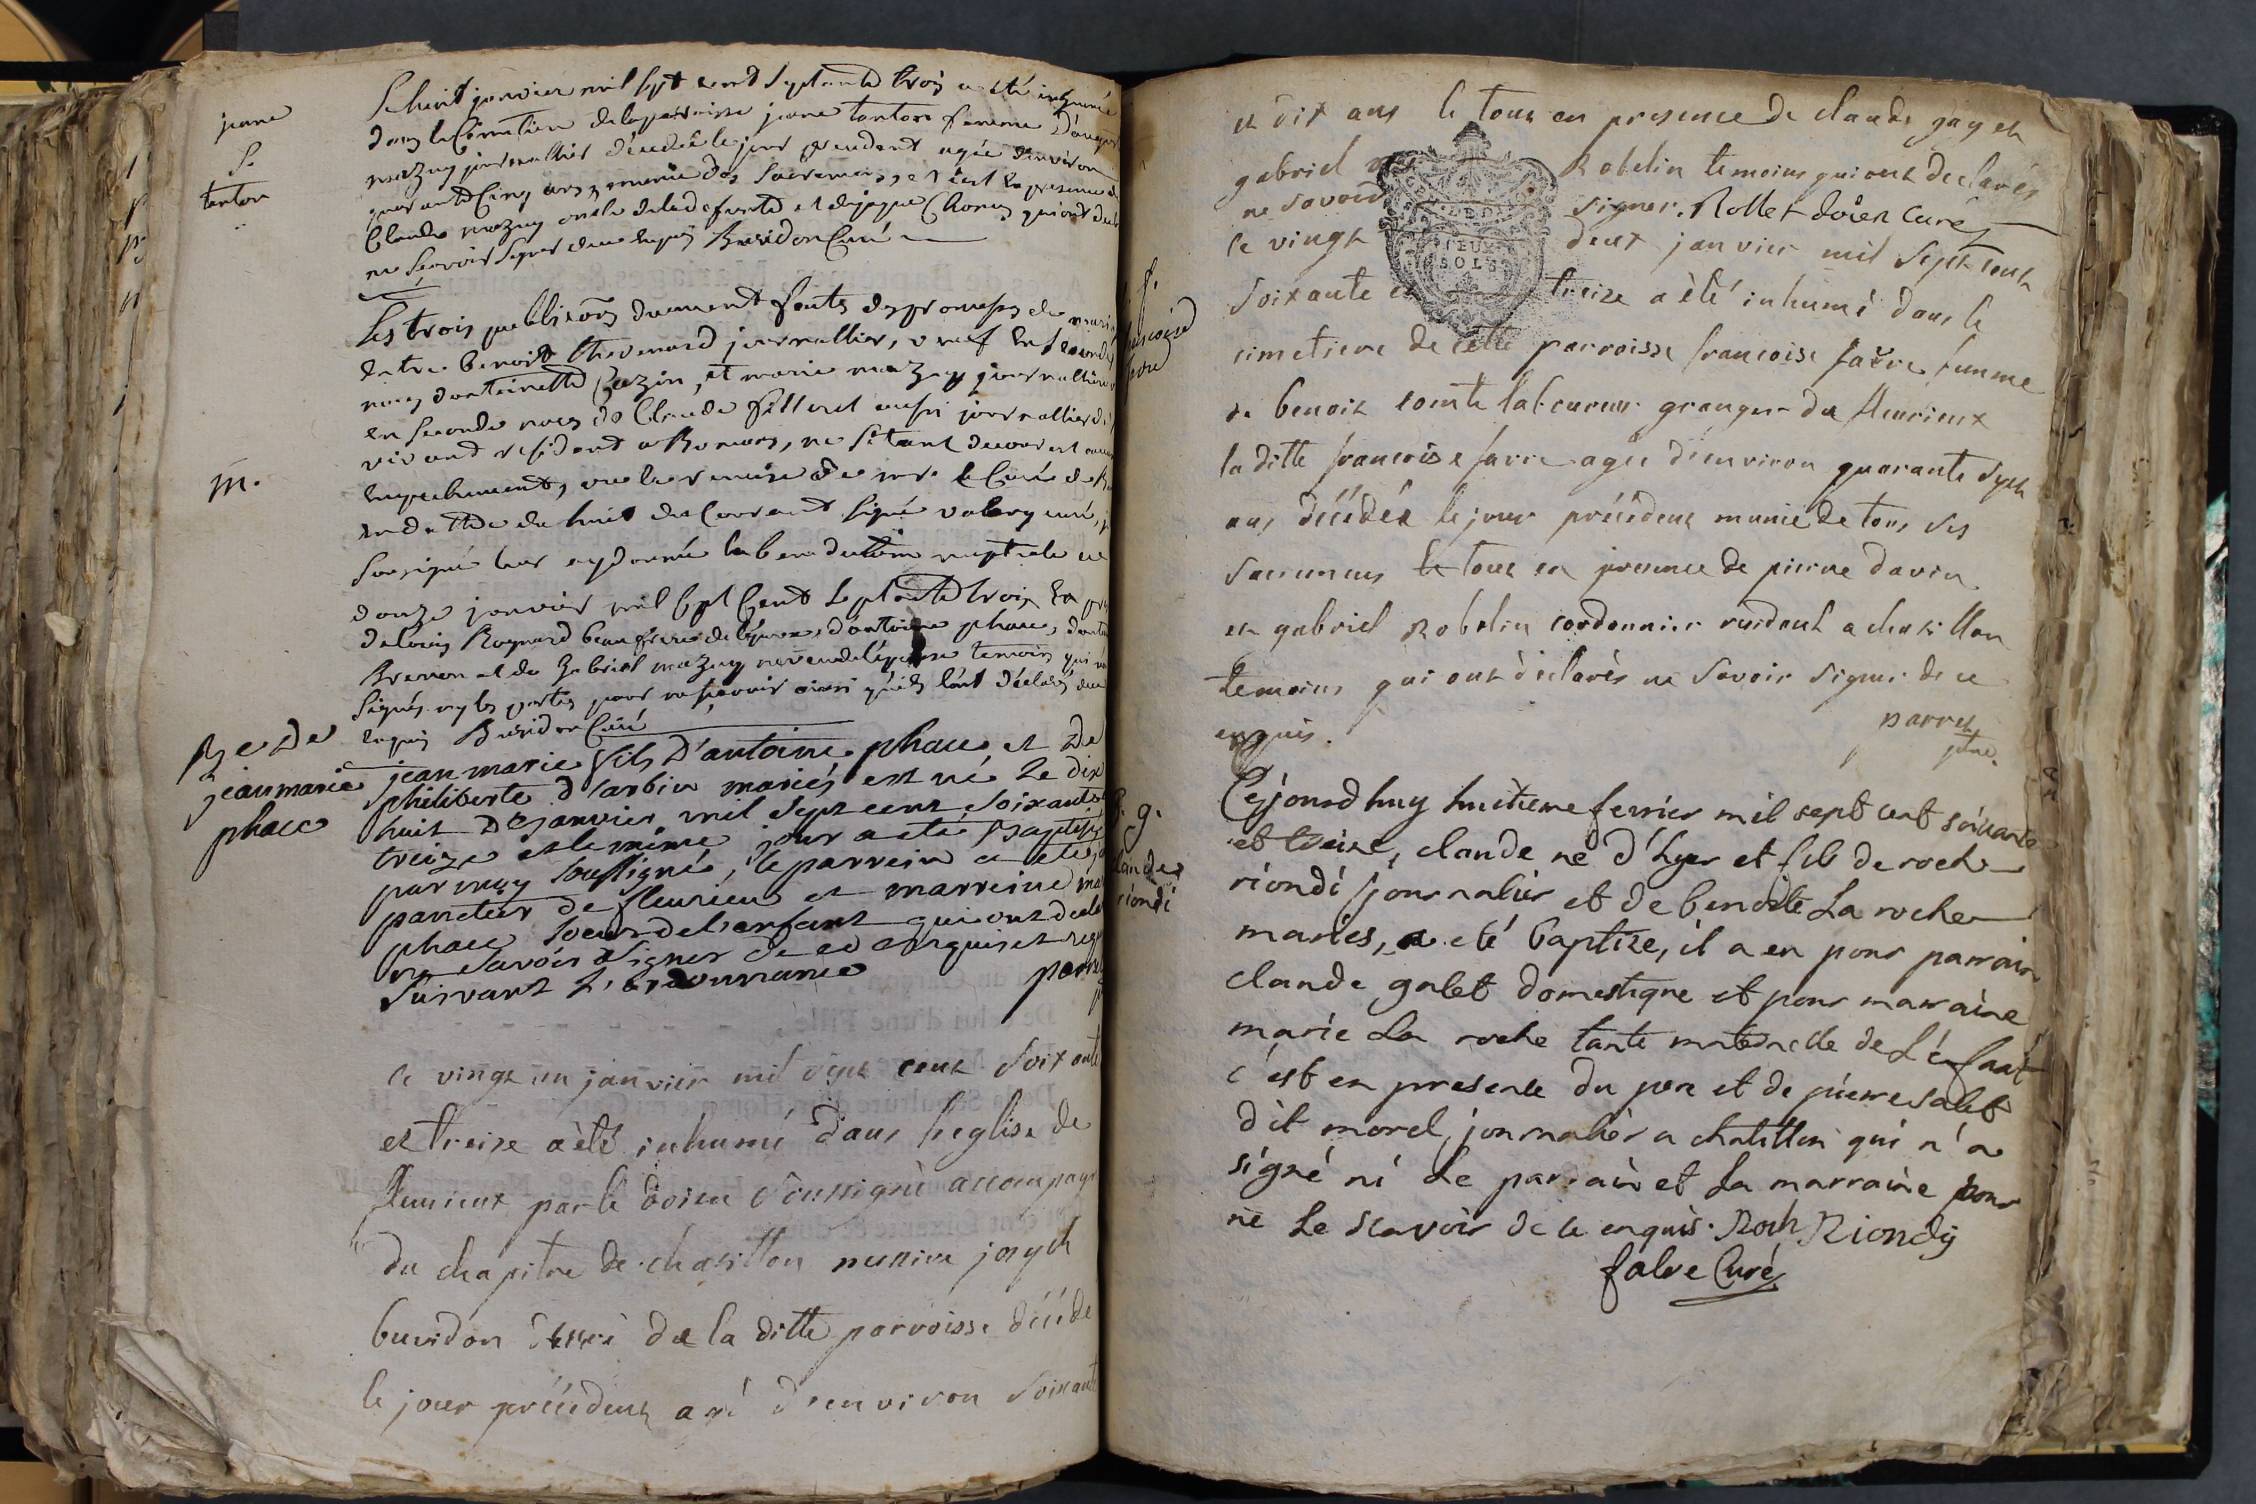 jeane
S.
tanton
Le huit janvier mil sept cent septante trois a été inhumée
dans le Cimetiere de la paroisse jeane tanton femme
mazuy journallier décédée le jour precedent agée d'environ
quarante Cinq ans, munie des Sacremens, et c'est en presence de
Claude mazuy oncle de la defunte et de qui ont
ne Sçavoir Signer de ce enquis Buvidon Curé
m.
Les trois publications duement faites des promesses de
Entre benoist thevenard journallier, veuf en secondes
noces d'antoinette Cazin, et marie mazuy journalliere
en Seconde noces de Claude aussi journallier
vivant resident a Romans, ne s'étant decouvert aucun
Empechement, vue la remise de mr. le Curé de
en datte du huit du Courant Signé valery curé,
Soussigné leur ay donné la benediction nuptiale ce
douze janvier mil Sept Cent Septante trois En
de louis Roynard beaufrere de l'epoux, d'antoine phace,
Brevon et de Gabriel mazuy neveu de l'épouse temoins qui
Signés ny les parties pour ne sçavoir ainsi qu'ils l'ont déclaré
enquis Buvidon Curé
B de
jean marie
phace
jean marie fils D'antoine phace et De
philiberte darbier mariés est né le dix
huit De janvier mil Sept cent Soixante
treize et le même jour a été Baptisé
par moy Soussigné, le parrein a été
de fleurieu et marreine
phace Soeur de l'enfant qui ont
ne Savoir Signer de ce enquis et
Suivant L'ordonnance
le vingt un janvier mil Sept cent Soixante
et treize a été inhumé dans l'eglise de
fleurieux par le doien Soussigné
du chapitre de chatillon messire joseph
buvidon curé de la ditte parroisse décédé
le jour précédent agé d'environ Soixante
et dix ans le tout en presence de claude gay et
gabriel Robelin temoins qui ont declarés
ne savoir signer. Rollet doien Curé
le vingt deux janvier mil Sept cent
Soixante et treize a été inhumé dans le
cimetiere de cette parroisse francoise favre femme
de benoit comte laboureur granger du fleurieux
la ditte francoise favre agée d'environ quarante Sept
ans décédée le jour précédent munie de tous ses
Sacremens le tout en presence de pierre davin
et gabriel Robelin cordonnier resident a chatillon
temoins qui ont declarés ne Savoir Signer de ce
enquis.
B. g.
claude
riondi
Cejourd'huy huitieme fevrier mil sept cent soixante
et treize, claude né d'hyer et fils de roch
riondi journalier et de benoite La roche
mariés, a été baptize, il a eu pour parrain
claude galet domestique et pour marraine
marie La roche tante maternelle de L'enfant
c'est en presence du pere et de pierre Salet
dit morel, journalier a chatillon qui n'a
signé ni Le parrain et La marraine pour
ne Le scavoir de ce enquis. Roch Riondy
Curé